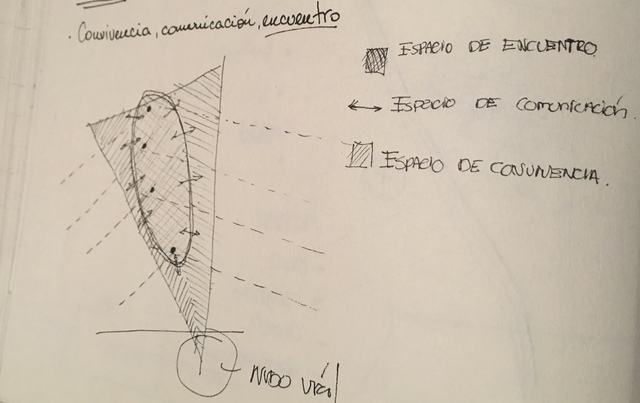 · Convivencia, comunicación, encuentro
ESPACIO DE ENCUENTRO
ESPACIO DE COMUNICACIÓN.
ESPACIO DE CONVIVENCIA.
NUDO VIAL